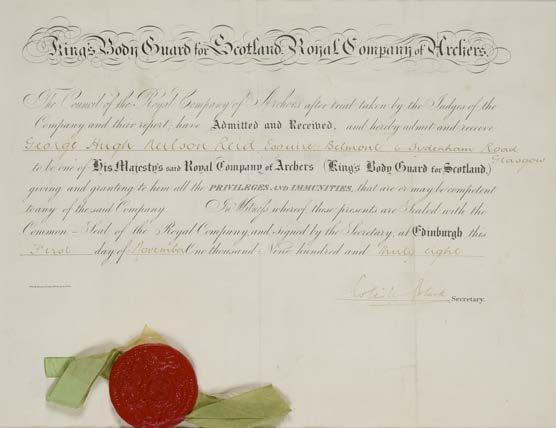 King's Body Guard for Scotland, Royal Company of Archers.
The Council of the Royal Company of Archers after trial taken by the Judges of the
Company and their report, have Admitted and Received, and hereby admit and receive
George Hugh Neilson Reid Esquire Belmont 6 Sydenham Road
Glasgow
to be one of His Majesty's said Royal Company of Archers (King's Body Guard for Scotland,)
giving and granting to him all the PRIVILEGES AND IMMUNITIES, that are or may be competent
to any of the said Company In Witness whereof these presents are Sealed with the
Common-Seal of the Royal Company, and signed by the Secretary, at Edinburgh this
First day of November One thousand Nine hundred and
Secretary.